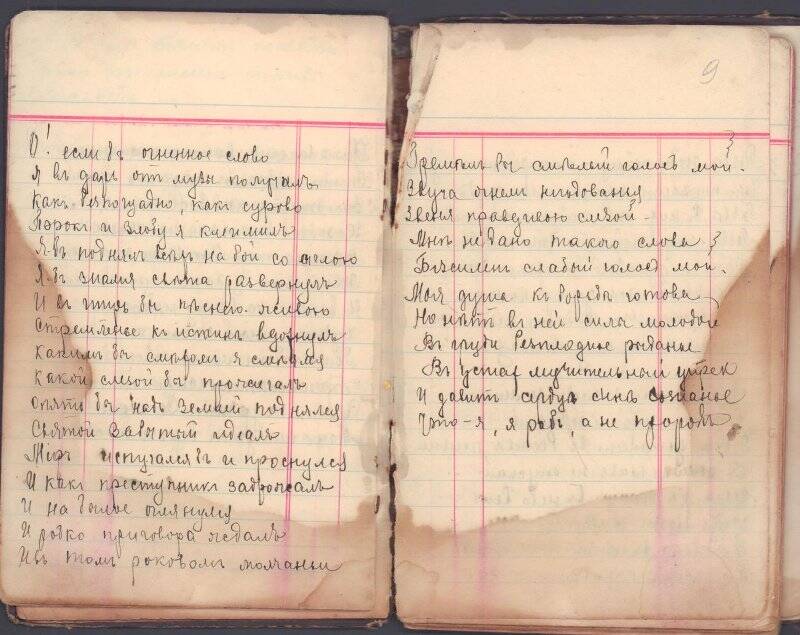 О! если бъ огненное слово
Я въ даръ отъ музы получалъ
Какъ безпощадно, какъ сурово
Пороки и злобу я клеймилъ
Я-бъ поднялъ всѣхъ на бой со мглою
Я-бъ знамя свѣта развернулъ
И въ міръ бы пѣснею живою
Стремленье къ истинѣ вдохнулъ
Какимъ бы смѣхомъ я смѣялся
Какой слезой бы прожигалъ
Опять бы надъ землей поднялся
Святой забытый идеалъ
Міръ испугался бъ и проснулся
И какъ преступникъ задрожалъ
И на былое оглянулся
И робко приговора ждалъ
И въ томъ роковомъ молчаньи
9
Гремѣлъ бы смѣлый голосъ мой.
Звуча огнемъ негодованья
Звеня правдивою слезой
Мнѣ не дано такого слова
Безсиленъ слабый голосъ мой.
Моя душа къ борьбѣ готова
Но нѣтъ въ ней силы молодой
Въ груди безплодное рыданье
Въ устахъ мучительный упрек
И давитъ сердце мнѣ сознанье
Что-я, я рабъ, а не пророкъ